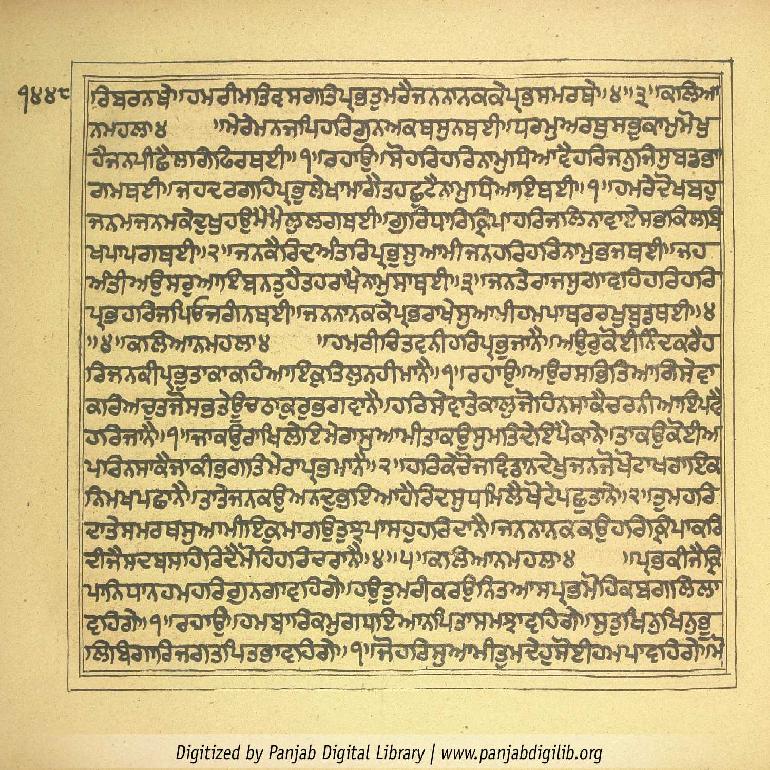 ੧੪੪੮
ਰਿਬਰਨਥੇ॥ਹਮਰੀਮਤਿਵਸਗਤਿਪ੍ਰਭਤੁਮਰੈਜਨਨਾਨਕਕੇਪ੍ਰਭਸਮਰਥੇ॥੪॥੩॥ਕਲਿਆ
ਨਮਹਲਾ੪ ॥ਮੇਰੇਮਨਜਪਿਹਰਿਗੁਨਅਕਥਸੁਨਥਈ॥ਧਰਮੁਅਰਥੁਸਭੁਕਾਮੁਮੋਖੁ
ਹੈਜਨਪੀਛੈਲਗਿਫਿਰਥਈ॥੧॥ਰਹਾਉ॥ਸੋਹਰਿਹਰਿਨਾਮੁਧਿਆਵੈਹਰਿਜਨੁਜਿਸੁਬਡਭਾ
ਗਮਥਈ॥ਜਹਦਰਗਹਿਪ੍ਰਭੁਲੇਖਾਮਾਗੈਤਹਛੁਟੈਨਾਮੁਧਿਆਇਥਈ॥੧॥ਹਮਰੇਦੋਖਬਹੁ
ਜਨਮਜਨਮਕੇਦੁਖੁਹਉਮੈਮੈਲੁਲਗਥਈ॥ਗੁਰਿਧਾਰਿਕ੍ਰਿਪਾਹਰਿਜਲਿਨਾਵਾਏਸਭਕਿਲਬਿ
ਖਪਾਪਗਥਈ॥੨॥ਜਨਕੈਰਿਦਅੰਤਰਿਪ੍ਰਭੁਸੁਆਮੀਜਨਹਰਿਹਰਿਨਾਮੁਭਜਥਈ॥ਜਹ
ਅੰਤੀਅਉਸਰੁਆਇਬਨਤੁਹੈਤਹਰਾਖੈਨਾਮੁਸਾਥਈ॥੩॥ਜਨਤੇਰਾਜਸੁਗਾਵਹਿਹਰਿਹਰਿ
ਪ੍ਰਭਹਰਿਜਪਿਓਜਗੰਨਥਈ॥ਜਨਨਾਨਕਕੇਪ੍ਰਭਰਾਖੇਸੁਆਮੀਹਮਪਾਥਰਰਖੁਬੁਡਥਈ॥੪
॥੪॥ਕਲਿਆਨਮਹਲਾ੪ ॥ਹਮਰੀਚਿਤਵਨੀਹਰਿਪ੍ਰਭੁਜਾਨੈ॥ਅਉਰੁਕੋਈਨਿੰਦਕਰੈਹ
ਰਿਜਨਕੀਪ੍ਰਭੁਤਾਕਾਕਹਿਆਇਕੁਤਿਲੁਨਹੀਮਾਨੈ॥੧॥ਰਹਾਉ॥ਅਉਰਸਭਤਿਆਗਿਸੇਵਾ
ਕਰਿਅਚੁਤਜੋਸਭਤੇਊਚਠਾਕੁਰੁਭਗਵਾਨੈ॥ਹਰਿਸੇਵਾਤੇਕਾਲੁਜੋਹਿਨਸਾਕੈਚਰਨੀਆਇਪਵੈ
ਹਰਿਜਾਨੈ॥੧॥ਜਾਕਉਰਾਖਿਲੇਇਮੇਰਾਸੁਆਮੀਤਾਕਉਸੁਮਤਿਦੇਇਪੈਕਾਨੈ॥ਤਾਕਉਕੋਈਅ
ਪਰਿਨਸਾਕੈਜਾਕੀਭਗਤਿਮੇਰਾਪ੍ਰਭੁਮਾਨੈ॥੨॥ਹਰਿਕੇਚੋਜਵਿਡਾਨਦੇਖੁਜਨਜੋਖੋਟਾਖਰਾਇਕ
ਨਿਮਖਪਛਾਨੈ॥ਤਾਤੇਜਨਕਉਅਨਦੁਭਇਆਹੈਰਿਦਸੁਧਮਿਲੈਖੋਟੇਪਛੁਤਾਨੈ॥੩॥ਤੁਮਹਰਿ
ਦਾਤੇਸਮਰਥਸੁਆਮੀਇਕੁਮਾਗਉਤੁਝਪਾਸਹੁਹਰਿਦਾਨੈ॥ਜਨਨਾਨਕਕਉਹਰਿਕ੍ਰਿਪਾਕਰਿ
ਦੀਜੈਸਦਬਸਹਿਰਿਦੈਮੋਹਿਹਰਿਚਰਾਨੈ॥੪॥੫॥ਕਲਿਆਨਮਹਲਾ੪ ॥ਪ੍ਰਭਕੀਜੈਕ੍ਰਿ
ਪਾਨਿਧਾਨਹਮਹਰਿਗੁਨਗਾਵਹਿਗੇ॥ਹਉਤੁਮਰੀਕਰਉਨਿਤਆਸਪ੍ਰਭਮੋਹਿਕਬਗਲਿਲਾ
ਵਹਿਗੇ॥੧॥ਰਹਾਉ॥ਹਮਬਾਰਿਕਮੁਗਧਇਆਨਪਿਤਾਸਮਝਾਵਹਿਗੇ॥ਸੁਤੁਖਿਨੁਖਿਨੁਭੂ
ਲਿਬਿਗਾਰਿਜਗਤਪਿਤਭਾਵਹਿਗੇ॥੧॥ਜੋਹਰਿਸੁਆਮੀਤੁਮਦੇਹੁਸੋਈਹਮਪਾਵਹਿਗੇ॥ਮੋ
Digitized by Panjab Digital Library | www.panjabdigilib.org